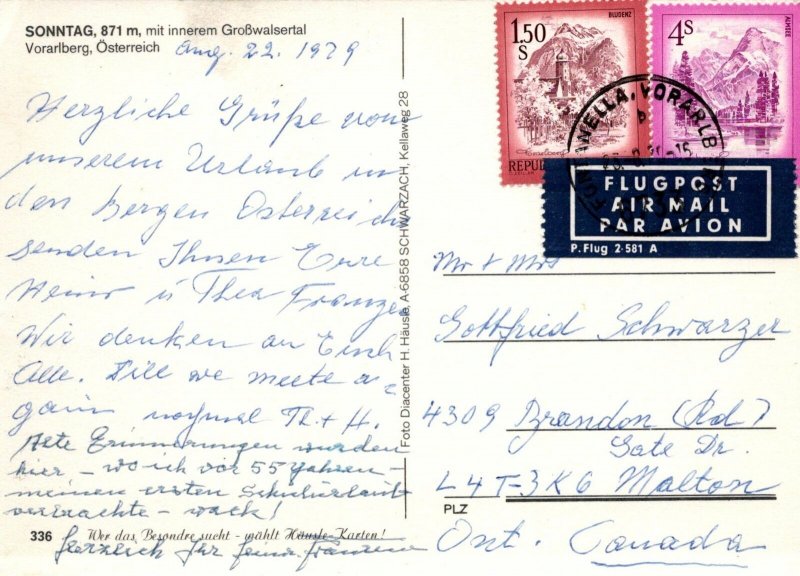 SONNTAG, 871 m, mit innerem Großwalsertal
Vorarlberg, Österreich
Aug. 22. 1979
Herzliche Grüße vom
unserem Urlaub in
den Bergen Österreichs
senden Ihnen Ihre
Heinz u Thea Franzen
Wir denken an Euch
Alle. Till we meete a-
gain Th + H.
Alte Erinnerungen wurden
hier - wo ich vor 55 Jahren -
meinen ersten Schulurlaub
verbrachte - wach!
336 Wer das Besondre sucht - wählt Häusle-Karten!
Herzlich Ihr
Foto Diacenter H. Häusle, A-6858 SCHWARZACH, Kellaweg 28
BLUDENZ
1.50
S
REPUB
4S
ALMSEE
FONTANELLA, VORARLB
FLUGPOST
AIR MAIL
PAR AVION
P. Flug 2-581 A
Mr + Mrs
Gottfried Schwarzer
4309 Brandon (Rd)
Gate Dr.
L4T-3K6 Malton
PLZ
Ont. Canada